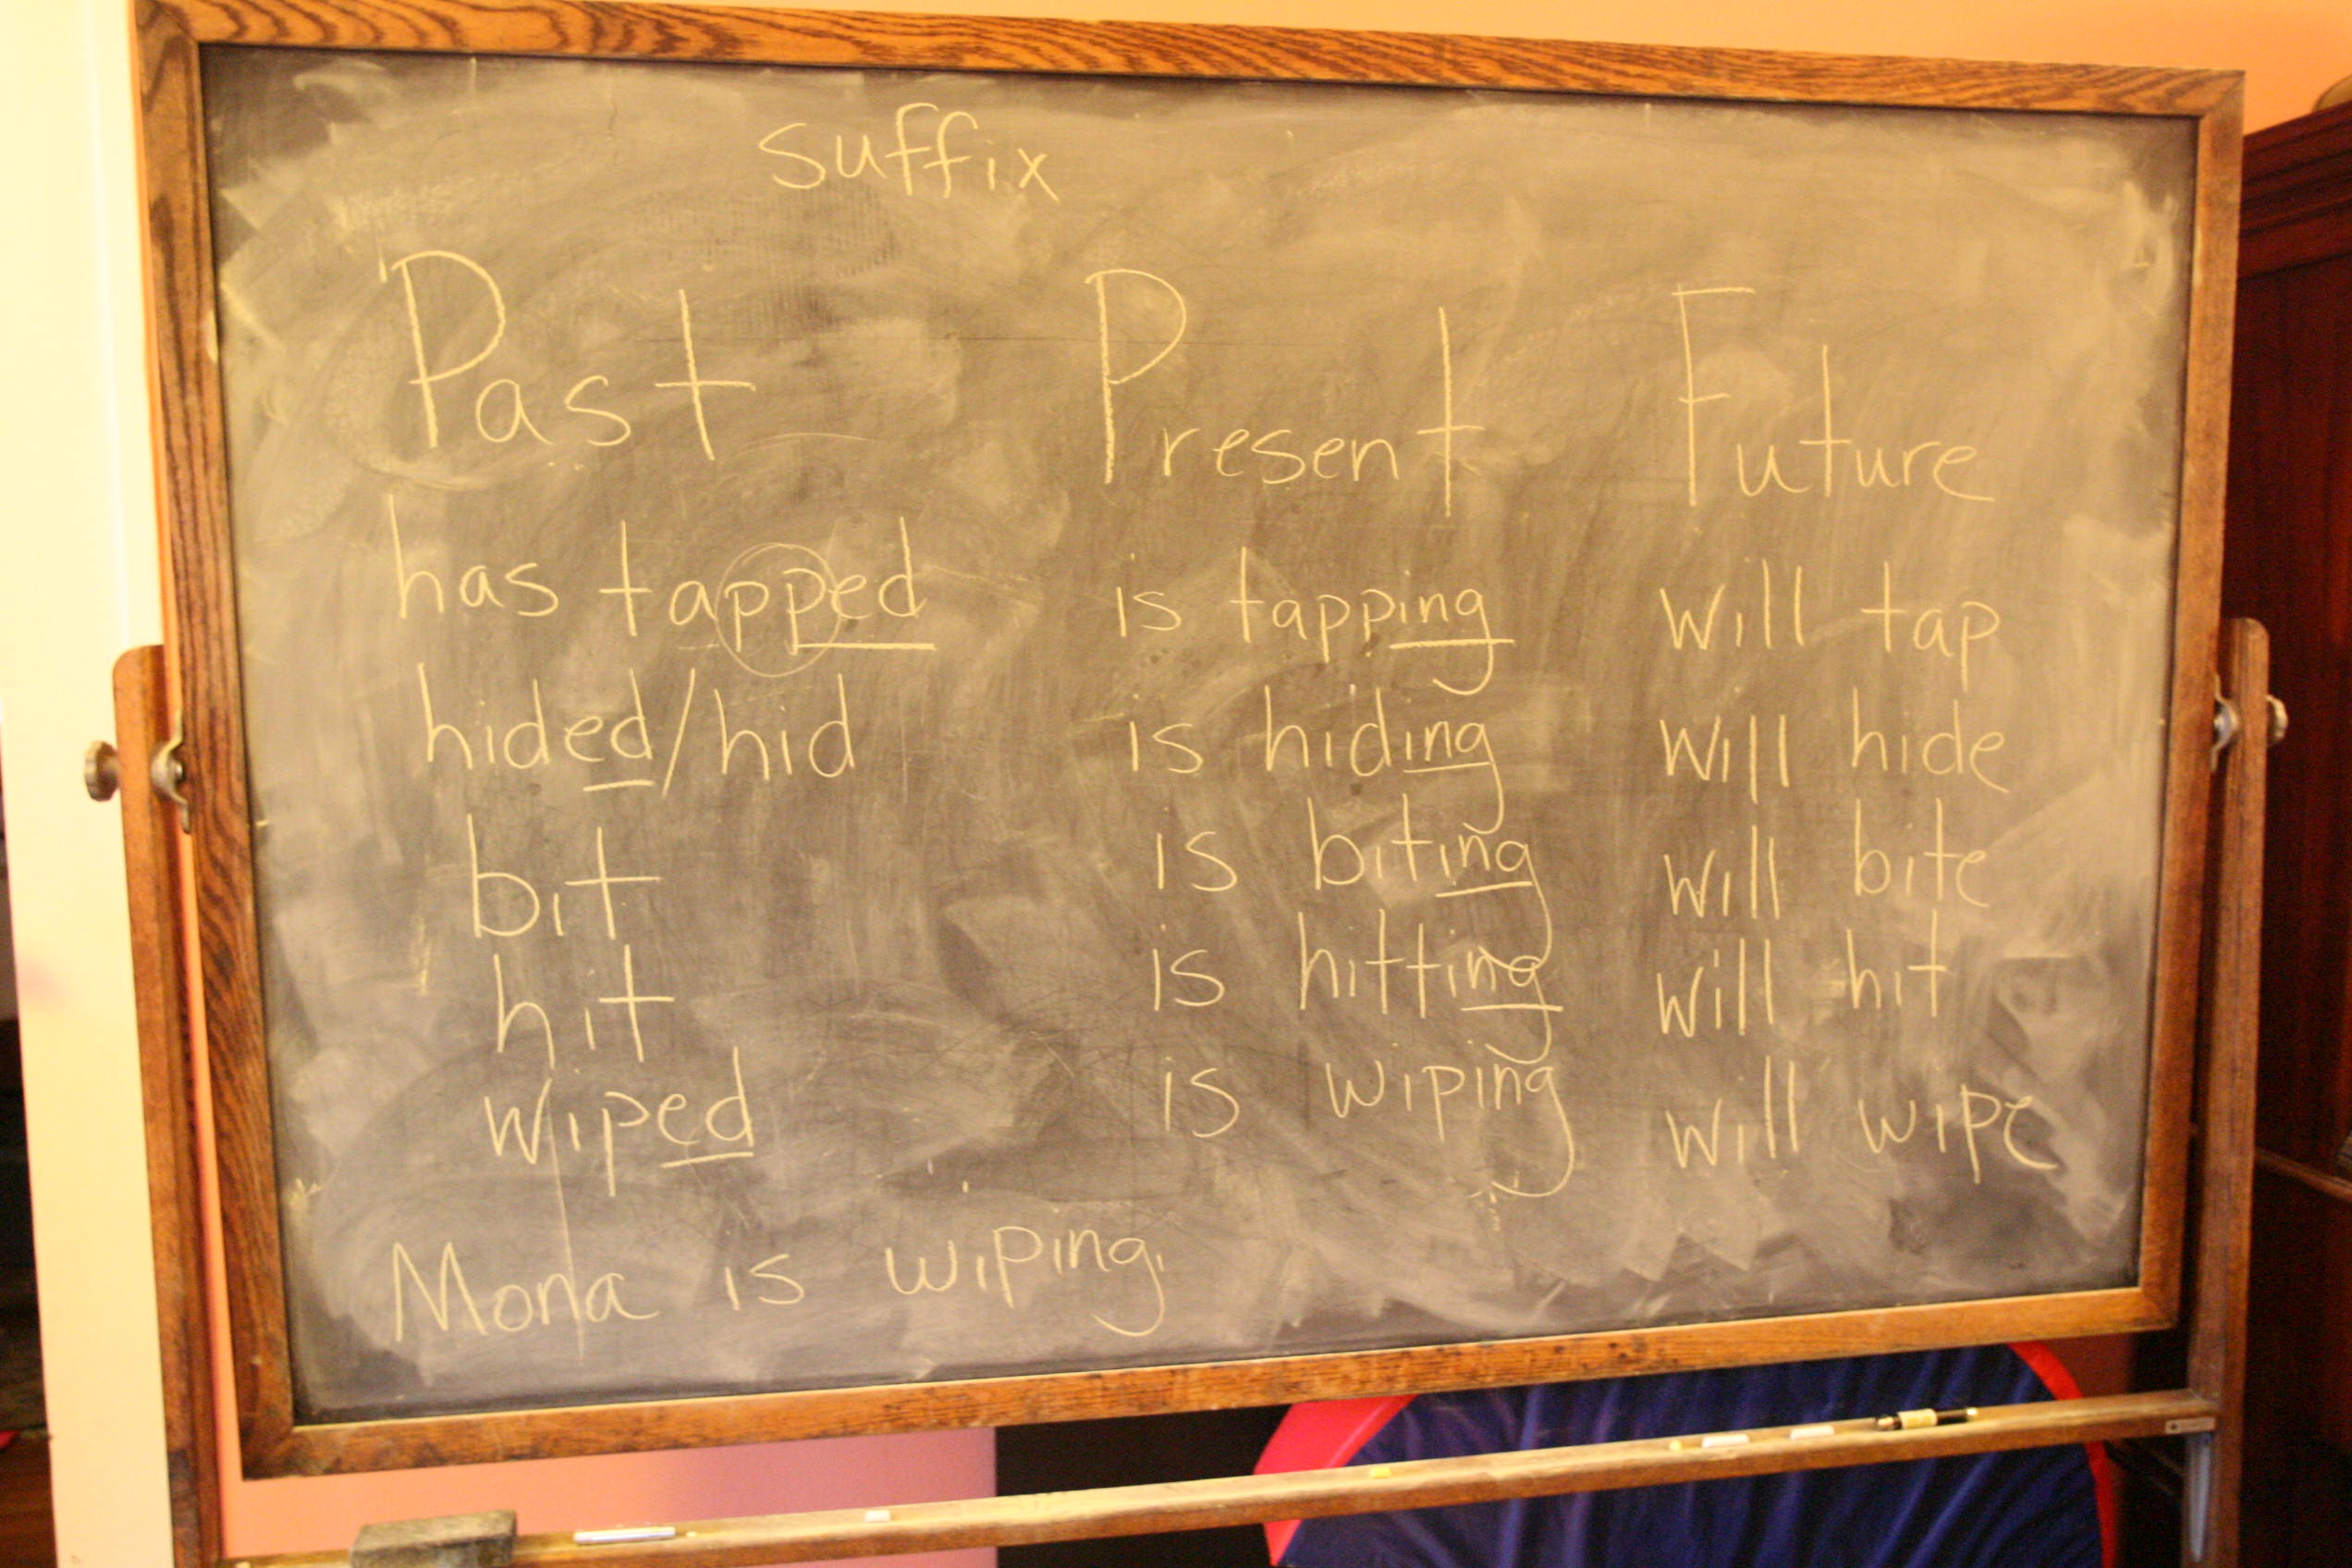 suffix
Past Present Future
has tapped is tapping will tap
hided/hid is hiding will hide
bit is biting will bite
hit is hitting will hit
wiped is wiping will wipe
Mona is wiping.